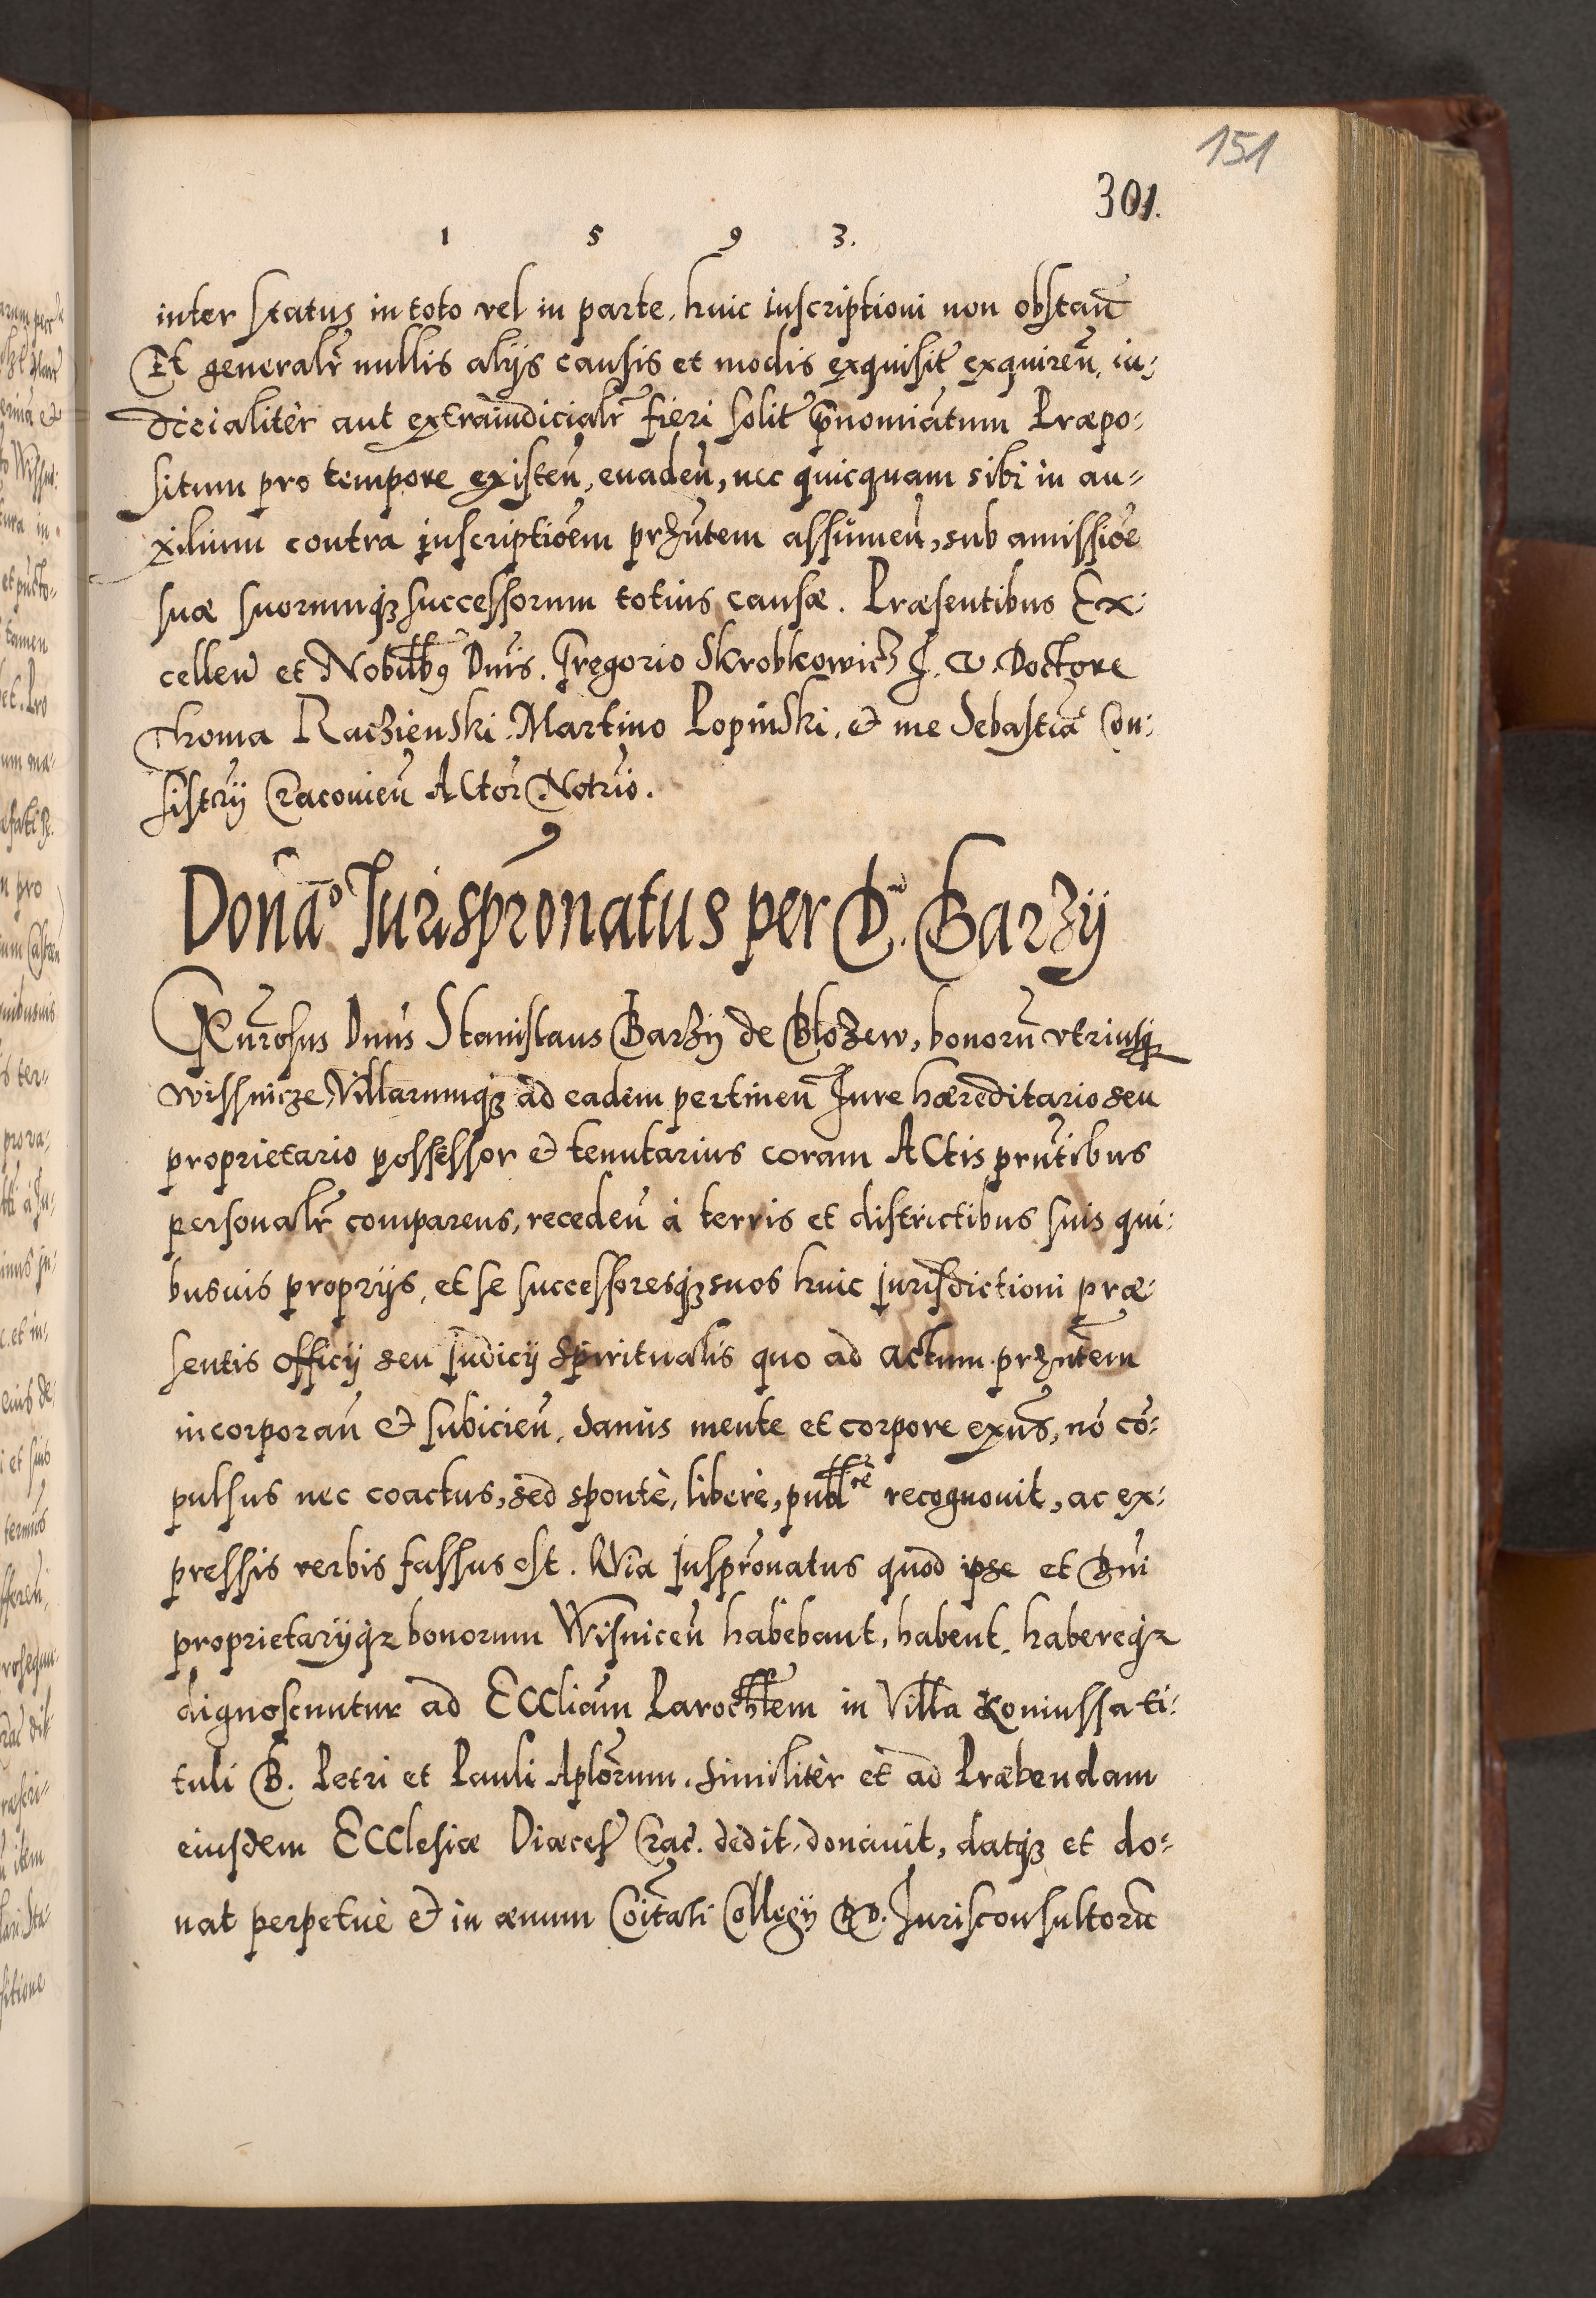 151
301.
1 5 9 3.
inter status in toto vel in parte, huic inscriptioni non obstan̄
Et generalr̄ nullis alijs causis et modis exquisit̄ exquiren̄, iu-
dicialitèr aut extraiudicialr̄ fieri solit̄ p̄nominatum Præpo-
situm pro tempore existen̄, euaden̄, nec quicquam sibi in au-
xilium contra inscriptiōem prznt̄em assumen̄, sub amissiōe
suæ suorumqz successorum totius causæ. Præsentibus Ex-
cellen̄ et Nobilibꝰ Dn̄is. Gregorio Skrobkowicz J. V. Doctore
Thoma Raczienski. Martino Lopinski, & me Sebastiā Con-
sistrij Cracouien̄ Actor̄ Notrio.
Donāo Jurispr̄onatus per D. Barzij
Gn̄rosus Dn̄us Stanislaus Barzij de Blozew, bonorū vtriusqz
Wissnicze, Villarumqz ad eadem pertinen̄ Jure hæreditario seu
proprietario possessor & tenutarius coram Actis prn̄tibus
personalr̄ comparens, receden̄ à terris et districtibus suis qui-
busuis proprijs, et se successoresqz suos huic jurisdictioni præ-
sentis officij seu judicij Spiritualis quo ad actum prznt̄em
incorporan̄ & subicien̄, sanus mente et corpore exn̄s, nō cō-
pulsus nec coactus, sed spontè, liberè, publicè recognouit, ac ex-
pressis verbis fassus est. Quia juspr̄onatus quod ipse et Dn̄i
proprietarijqz bonorum Wisnicen̄ habebant, habent, habereqz
dignoscuntur ad Eccliam Parochlem in Villa Koniussa ti-
tuli B. Petri et Pauli Aplōrum. similitèr et ad Præbendam
eiusdem Ecclesiæ Diæces̄ Crac̄. dedit, donauit, datqz et do-
nat perpetuè & in æuum Cōitati Collegij DD. Jurisconsultorū